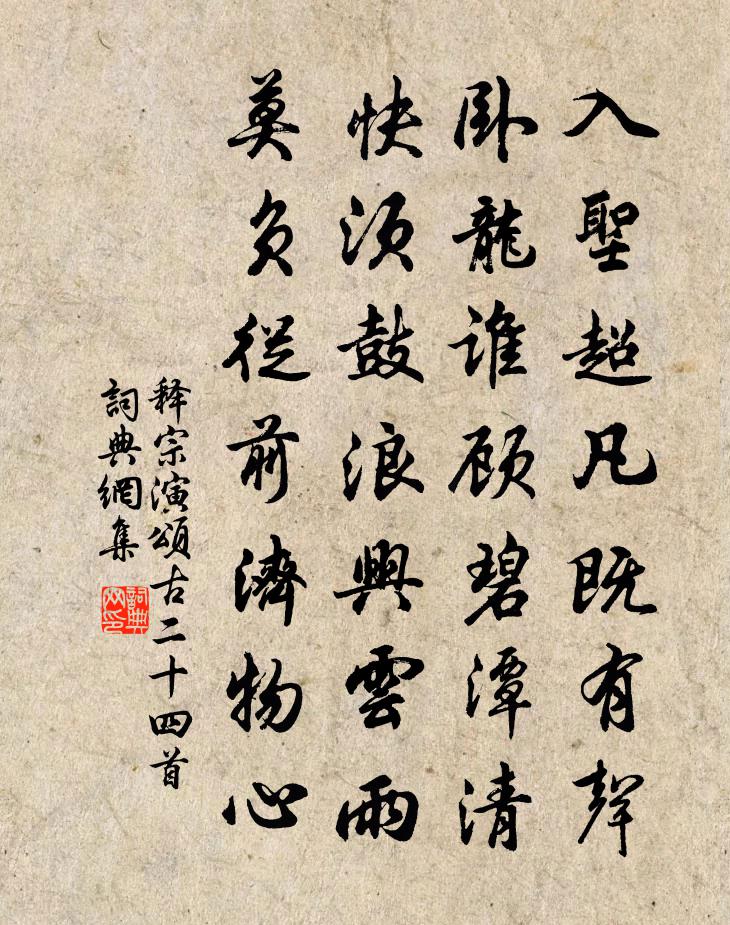 入聖超凡既有聲
卧龍誰顧碧潭清
快須鼓浪興雲雨
莫負從前濟物心
释宗演頌古二十四首
詞典網集
詞典網印